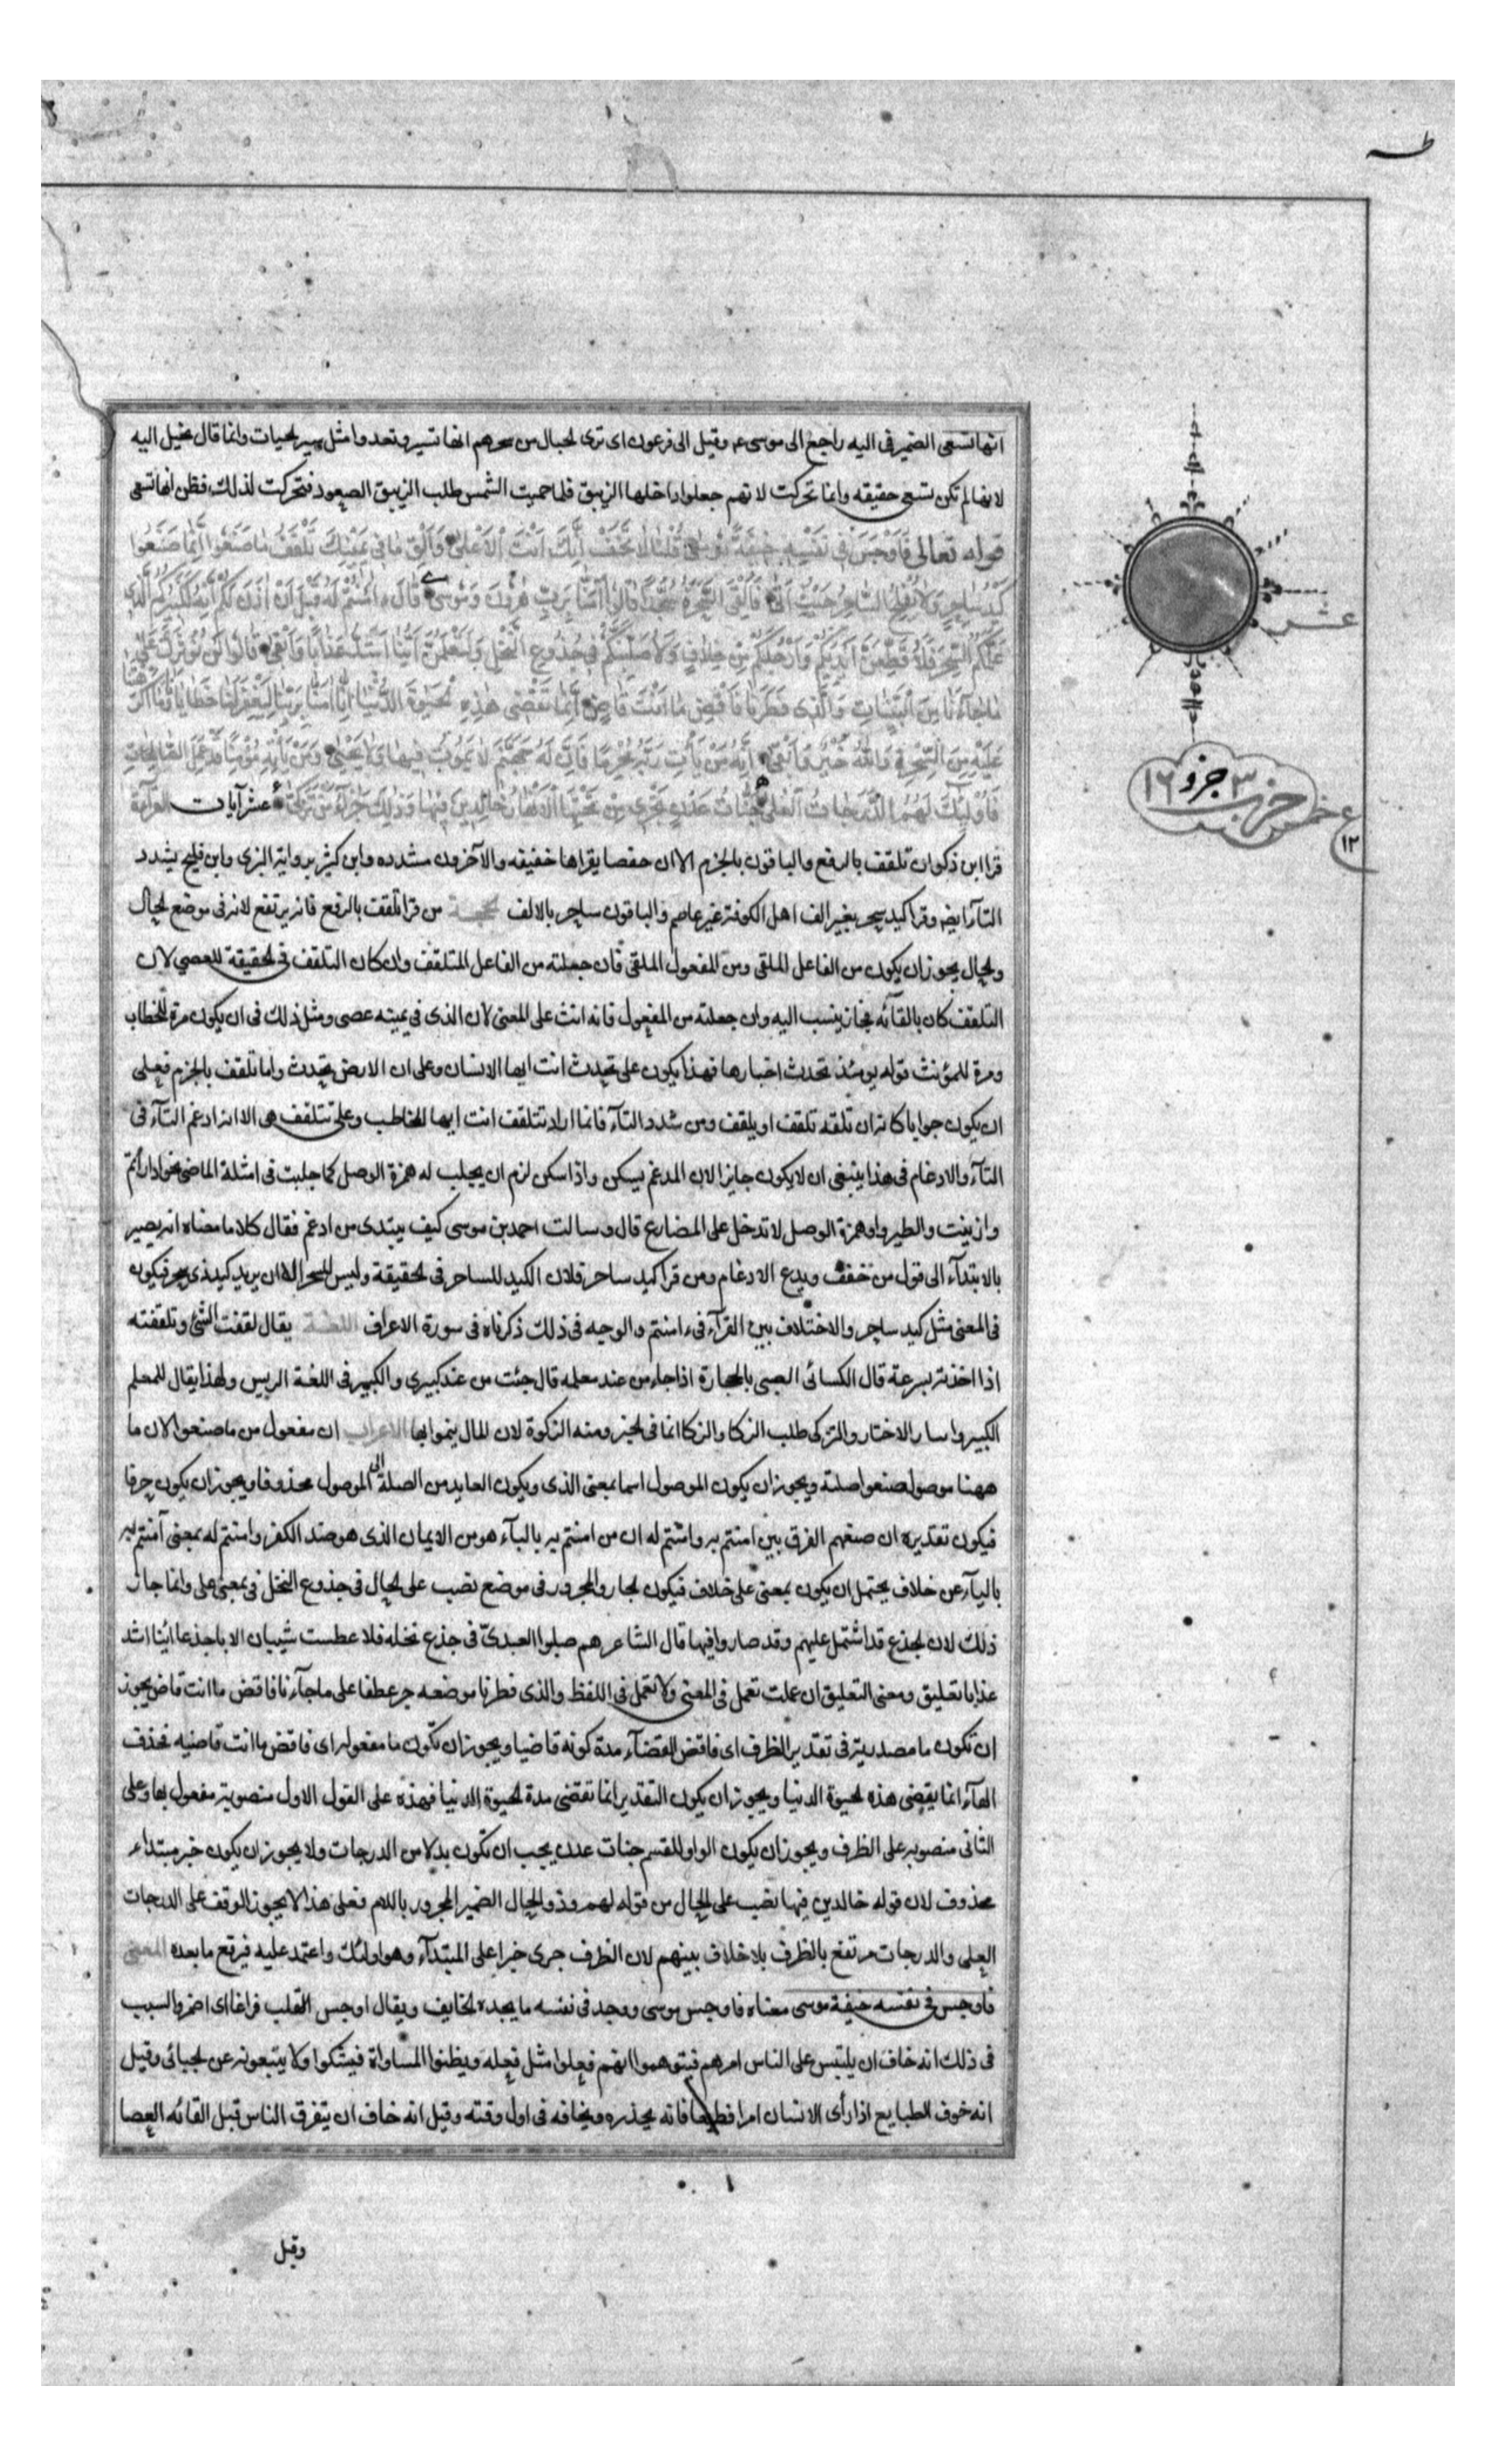 طه
انها تسعى الضمير فى اليه راجع الى موسى ع وقيل الى فرعون اى ترى الحبال من سحرهم انها تسير وتعدوا مثل سير الحيات وانما قال يخيل اليه
لانها لم تكن تسعى حقيقه وانما تحركت لانهم جعلوا داخلها الزيبق فلما حميت الشمس طلب الزيبق الصعود فتحركت لذلك فظن انها تسعى
قوله تعالى فَاَوْجَسَ فى نَفْسِهِ خيفَةً مُوسى قُلْنا لا تَخَفْ اِنَّكَ اَنْتَ الْاَعْلى وَاَلْقِ ما فى يَمينِكَ تَلْقَفْ ما صَنَعُوا اِنَّما صَنَعُوا
كَيْدُ ساحِرٍ وَلا يُفْلِحُ السّاحِرُ حَيْثُ اَتى فَاُلْقِىَ السَّحَرَةُ سُجَّداً قالُوا آمَنّا بِرَبِّ هرُونَ وَمُوسى قالَ ءامَنْتُمْ لَهُ قَبْلَ اَنْ اذَنَ لَكُمْ اِنَّهُ لَكَبيرُكُمُ الَّذى
عَلَّمَكُمُ السِّحْرَ فَلَاُقَطِّعَنَّ اَيْدِيَكُمْ وَاَرْجُلَكُمْ مِنْ خِلافٍ وَلَاُصَلِّبَنَّكُمْ فى جُذُوعِ النَّخْلِ وَلَتَعْلَمُنَّ اَيُّنا اَشَدُّ عَذاباً وَاَبْقى قالُوا لَنْ نُؤْثِرَكَ عَلى
ما جآءَنا مِنَ الْبَيِّناتِ وَالَّذى فَطَرَنا فَاقْضِ ما اَنْتَ قاضٍ اِنَّما تَقْضى هذِهِ الْحَيوةَ الدُّنْيا اِنّا امَنّا بِرَبِّنا لِيَغْفِرَ لَنا خَطايانا وَما اَكْرَهْتَنا
عَلَيْهِ مِنَ السِّحْرِ وَاللهُ خَيْرٌ وَاَبْقى اِنَّهُ مَنْ يَأْتِ رَبَّهُ مُجْرِماً فَاِنَّ لَهُ جَهَنَّمَ لا يَمُوتُ فيها وَلا يَحْيى وَمَنْ يَأْتِهِ مُؤْمِناً قَدْ عَمِلَ الصّالِحاتِ
فَاُولئِكَ لَهُمُ الدَّرَجاتُ الْعُلى جَنّاتُ عَدْنٍ تَجْرى مِنْ تَحْتِهَا الْاَنْهارُ خالِدينَ فيها وَذلِكَ جَزآءُ مَنْ تَزَكّى عشر آيات القرآءة
قرا ابن ذكوان تلقف بالرفع والباقون بالجزم الا ان حفصا يقراها خفيفه والآخرون مشدده وابن كثير برواية البزى وابن فليح يشدد
التآ ايض وقرا كيد سحر بغير الف اهل الكوفة غير عاصم والباقون ساحر بالالف الحجــة من قرا تلقف بالرفع فانه يرتفع لانه فى موضع الحال
والحال يجوز ان يكون من الفاعل الملقى ومن المفعول الملقى فان جعلته من الفاعل المتلقف وان كان التلقف فى الحقيقة للعصى لان
التلقف كان بالقآئه فجاز ان ينسب اليه وان جعلته من المفعول فانه انث على المعنى لان الذى فى يمينه عصى ومثل ذلك فى ان يكون مرة للخطاب
ومرة للمؤنث قوله يومئذ تحدث اخبارها فهذا يكون على تحدث انت ايها الانسان وعلى ان الارض تحدث واما تلقف بالجزم فعلى
ان يكون جوابا كانه ان تلقه تلقف او يلقف ومن شدد التآء فانما اراد تتلقف انت ايها المخاطب وعلى تتلقف هى الا انه ادغم التآء فى
التآء والادغام فى هذا ينبغى ان لا يكون جايزا لان المدغم يسكن واذا سكن لزم ان يجلب له همزة الوصل كما جلبت فى امثلة الماضى نحو ادارأتم
وازينت والطيروا وهمزة الوصل لا تدخل على المضارع قال وسالت احمد بن موسى كيف يبتدى من ادغم فقال كلاما معناه انه يصير
بالابتدآء الى قول من خفف ويدع الادغام ومن قرا كيد ساحر فلان الكيد للساحر فى الحقيقة وليس للسحر الا ان يريد كيد ذى سحر فيكون
فى المعنى مثل كيد ساحر والاختلاف بين القرآء فى ءامنتم والوجه فى ذلك ذكرناه فى سورة الاعراف اللغــة يقال لقفت الشئ وتلقفته
اذا اخذته بسرعة قال الكسائى الصبى بالحجارة اذا جاء من عند معلمه قال جئت من عند كبيرى والكبير فى اللغة الريس ولهذا يقال للمعلم
الكبير والتزكى طلب الزكا والزكا النما فى الخير ومنه الزكوة لان المال ينموا بها الاعراب ان مفعول من ما صنعوا لان ما
ههنا موصول صنعوا صلته ويجوز ان يكون الموصول اسما بمعنى الذى ويكون العايد من الصلة الى الموصول محذوفا ويجوز ان يكون حرفا
فيكون تقديره ان صنعهم الفرق بين امنتم به وامنتم له ان من امنتم به بالبآء هو من الايمان الذى هو ضد الكفر وامنتم له بمعنى آمنتم به
بالبآء من خلاف يحتمل ان يكون بمعنى على خلاف فيكون الجار والمجرور فى موضع نصب على الحال فى جذوع النخل فى بمعنى على وانما جاز
ذلك لان الجذع قد اشتمل عليهم وقد صاروا فيها قال الشاعر هم صلبوا العبدىّ فى جذع نخله فلا عطست شيبان الا باجذعا اينا اشد
عذابا تعليق ومعنى التعليق ان عملت تعمل فى المعنى ولا تعمل فى اللفظ والذى فطرنا موضعه جر عطفا على ما جآءنا فاقض ما انت قاض يجوز
ان تكون ما مصدرية فى تقدير الظرف اى فاقض القضآء مدة كونه قاضيا ويجوز ان تكون ما مفعوله اى فاقض ما انت قاضيه فحذف
الهآء انما يقضى هذه الحيوة الدنيا ويجوز ان يكون التقدير انما تقضى مدة الحيوة الدنيا فهذه على القول الاول منصوبة مفعول بها وعلى
الثانى منصوبه على الظرف ويجوز ان يكون الواو للقسم جنات عدن يجب ان تكون بدلا من الدرجات ولا يجوز ان يكون خبر مبتداء
محذوف لان قوله خالدين فيها نصب على الحال من قوله لهم وذو الحال الضمير المجرور باللام فعلى هذا لا يجوز الوقف على الدرجات
العلى والدرجات مرتفع بالظرف بلا خلاف بينهم لان الظرف جرى خبرا على المبتدآء وهو اولئك واعتمد عليه فيرفع ما بعده المعنى
فاوجس فى نفسه خيفة موسى معناه فاوجس موسى ووجد فى نفسه ما يجده الخايف ويقال اوجس القلب فزاعا اى اضمر والسبب
فى ذلك انه خاف ان يلتبس على الناس امرهم فيتوهموا انهم فعلوا مثل فعله ويظنوا المساواة فيشكوا ولا يتبعونه عن الجبائى وقيل
انه خوف الطبايع اذا رأى الانسان امرا فظيعا فانه يحذره ويخافه فى اول وقته وقيل انه خاف ان يتفرق الناس قبل القائه العصا
وقيل
عشر
حزب ٣ جزو ١٦
ع
١٢